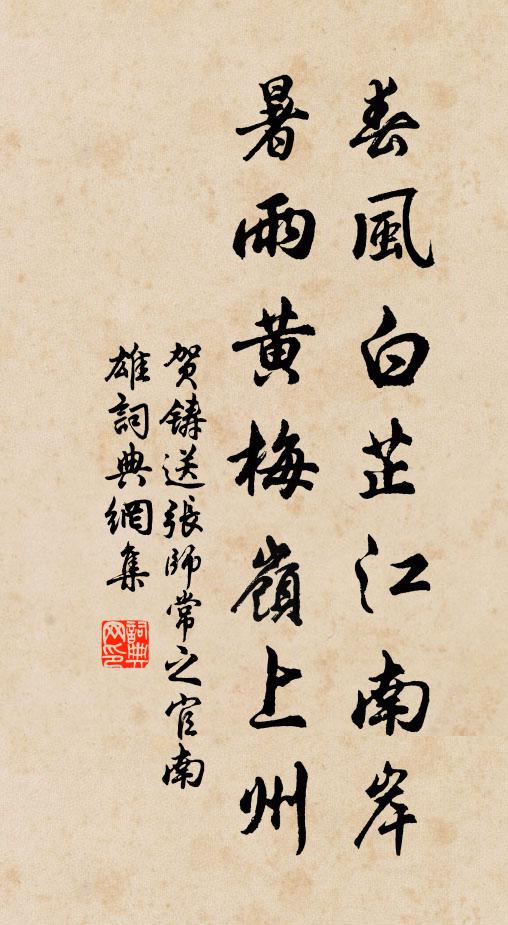 春風白芷江南岸
暑雨黄梅嶺上州
贺鑄送張師常之官南
雄詞典網集
詞典网印